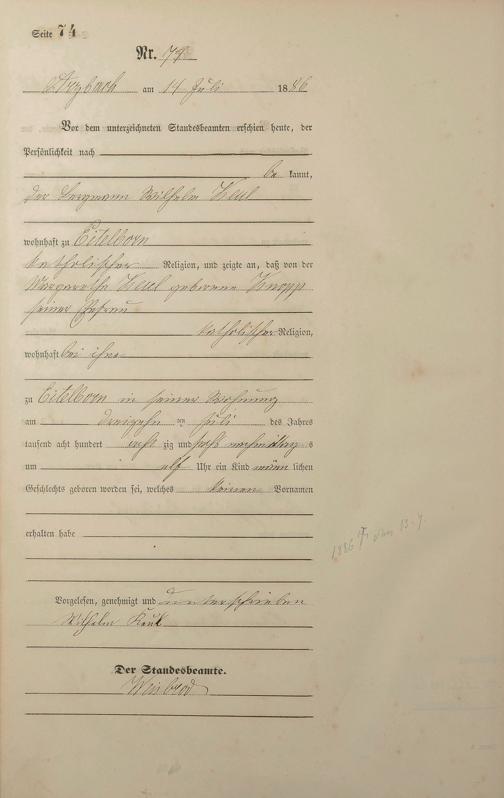 Seite 74
Nr. 79
Arzbach am 14 Juli 1886
Vor dem unterzeichneten Standesbeamten erschien heute, der
Persönlichkeit nach
be kannt,
der Bergmann Wilhelm Keul
wohnhaft zu Eitelborn
katholischer Religion, und zeigte an, daß von der
Margarethe Keul geborene Knopp
seiner Ehefrau
katholischer Religion,
wohnhaft bei ihm
zu Eitelborn in seiner Wohnung
am dreizehn ten Juli des Jahres
tausend acht hundert acht zig und sechs nachmittags
um elf Uhr ein Kind männ lichen
Geschlechts geboren worden sei, welches keinen Vornamen
erhalten habe
1886 † am 13.7.
Vorgelesen, genehmigt und unterschrieben
Wilhelm Keul
Der Standesbeamte.
Weisbrod